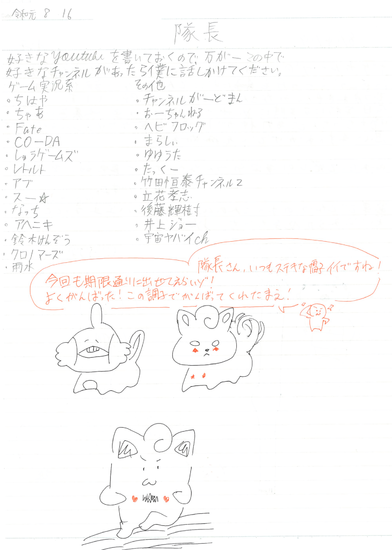 令和元 8 16
隊長
好きなYoutubeを書いておくので、万が一この中で
好きなチャンネルがあったら僕に話しかけてください。
ゲーム実況系
・ちはや
・ちゃあ
・Fate
・CO-DA
・しゅうゲームズ
・レトルト
・アブ
・スー☆
・なっち
・アベニキ
・鈴木けんぞう
・クロノアーズ
・雨水
その他
・チャンネルがーどまん
・おーちゃんねる
・ヘビフロッグ
・まらしぃ
・ゆゆうた
・たっくー
・竹田恒泰チャンネル2
・立花孝志
・後藤輝樹
・井上ジョー
・宇宙ヤバイch
隊長さん、いつもステキな調子イイですね!
今回も期限通りに出せてえらいゾ!
よくがんばった!この調子でがんばってくれたまえ!